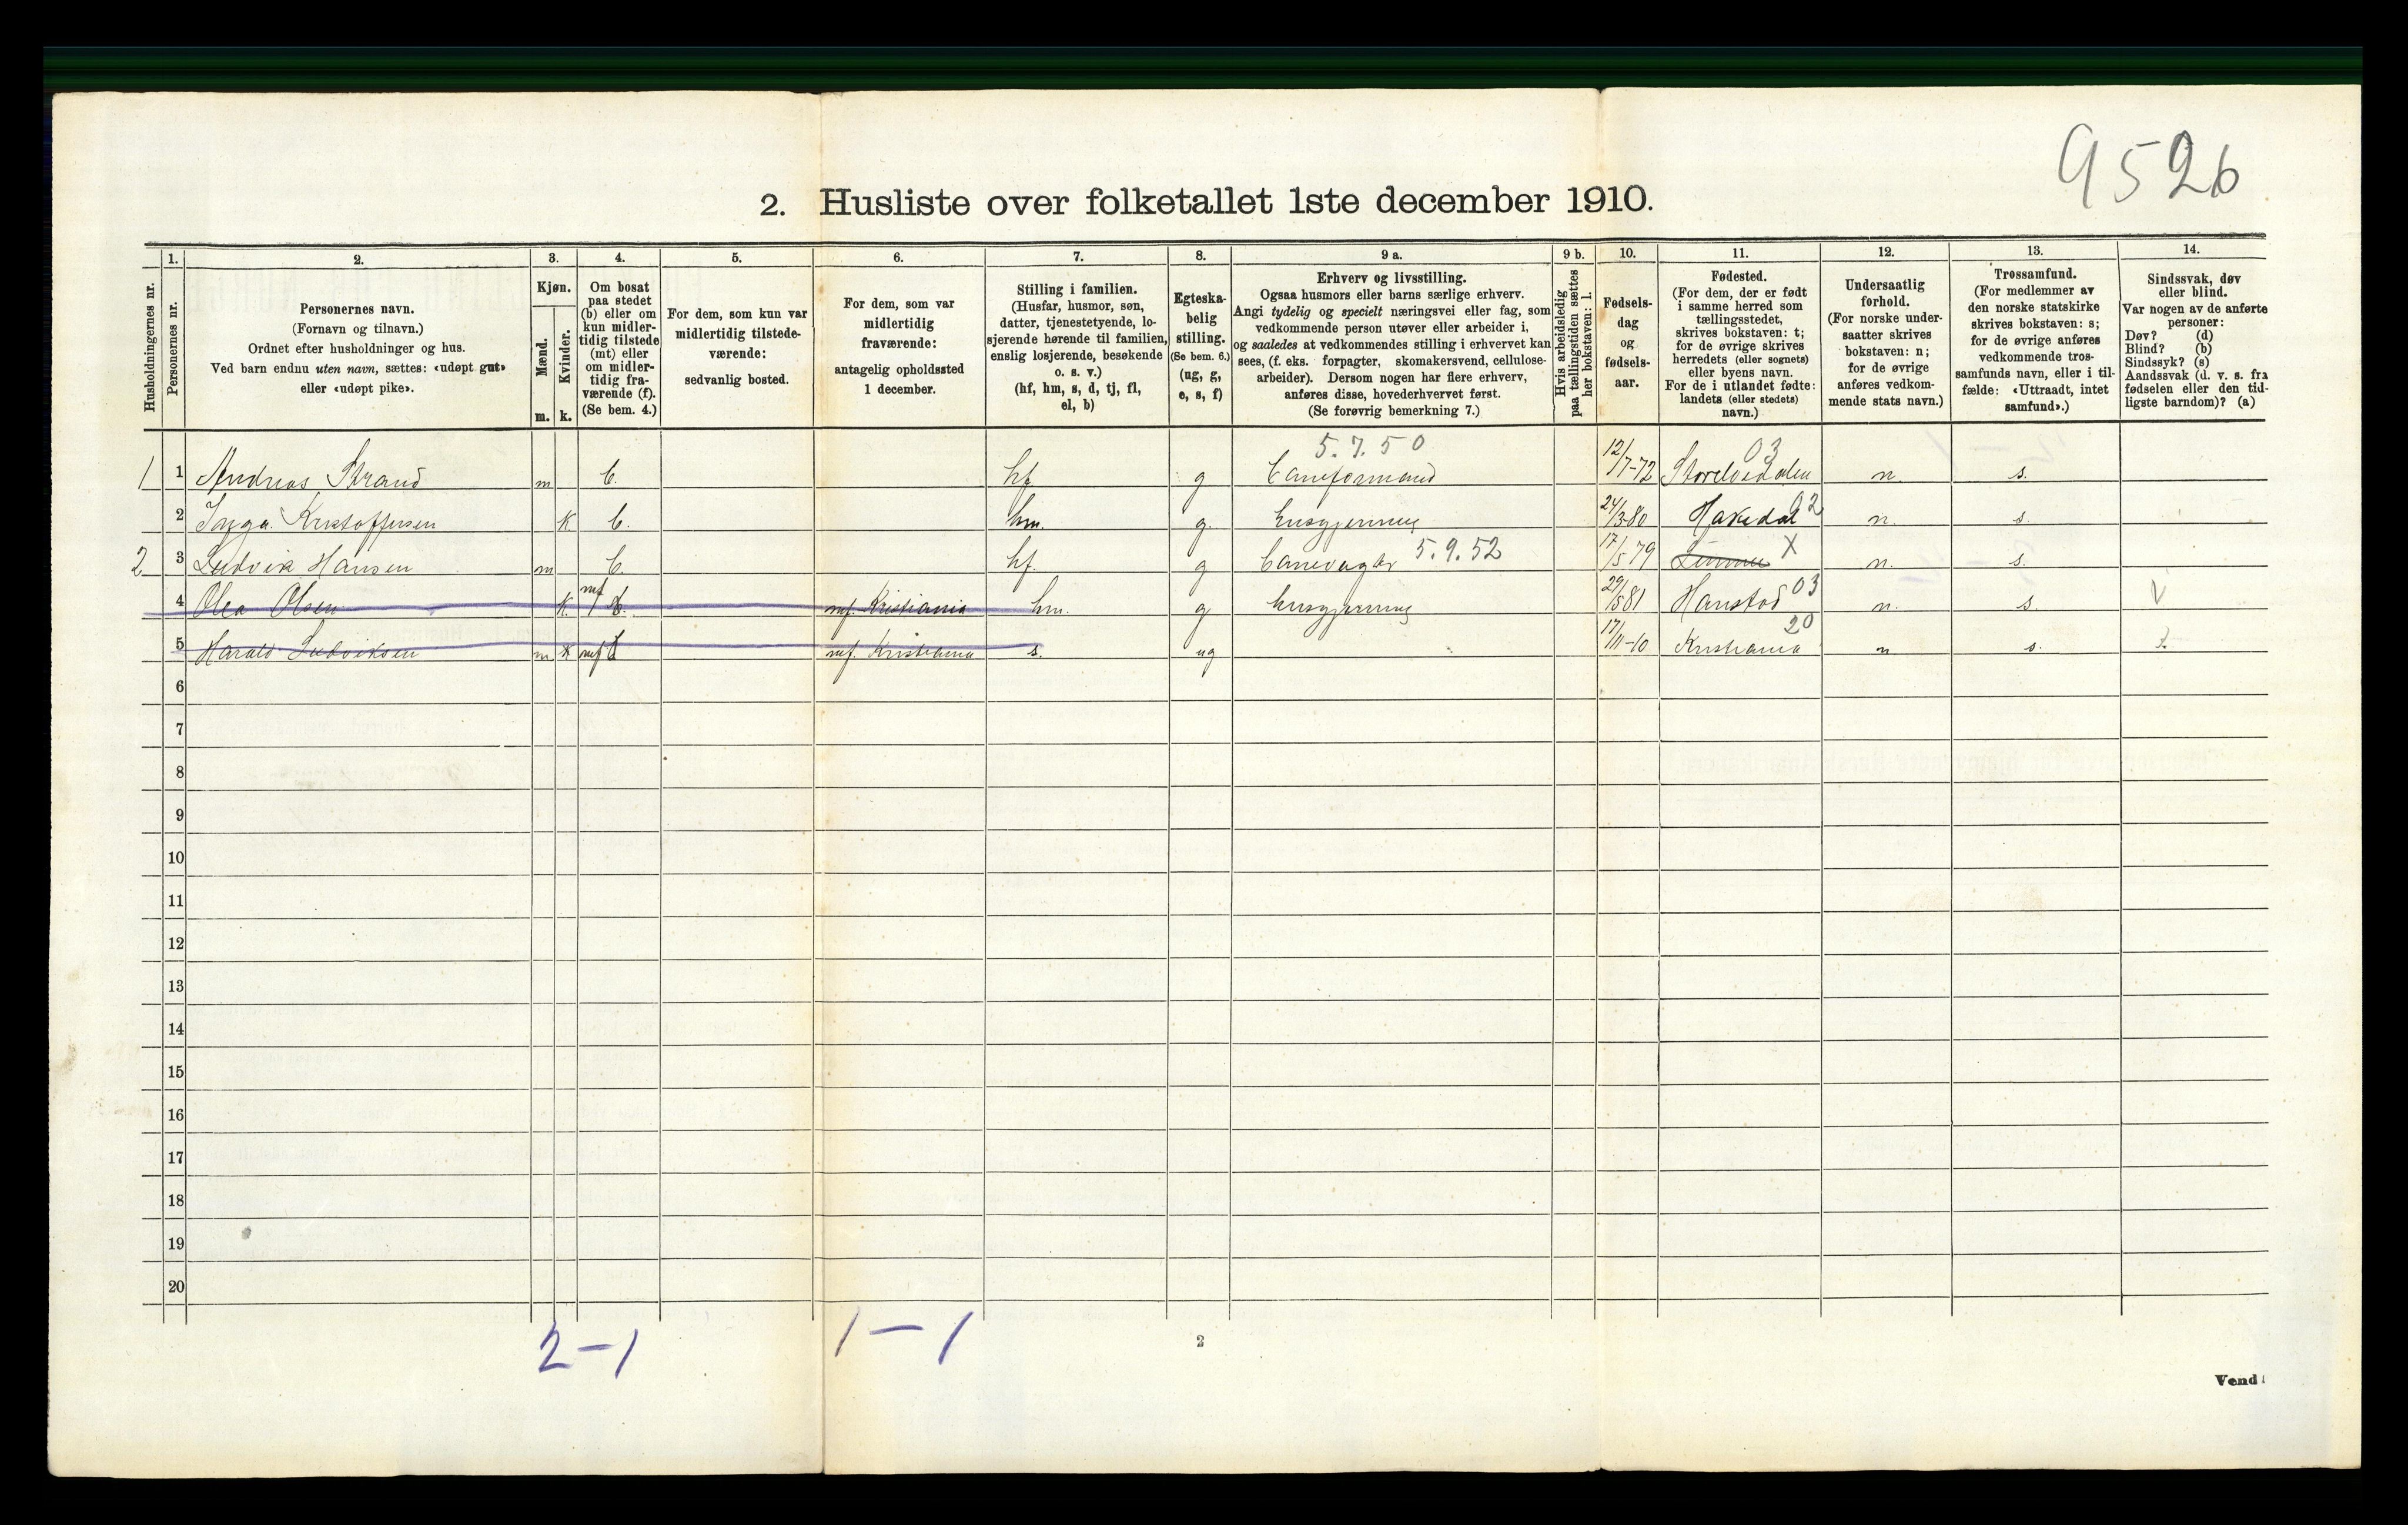 9526
2. Husliste over folketallet 1ste december 1910.
Husholdningernes nr.
1.
Personernes nr.
2.
Personernes navn.
(Fornavn og tilnavn.)
Ordnet efter husholdninger og hus.
Ved barn endnu uten navn, sættes: «udøpt gut»
eller «udøpt pike».
3.
Kjøn.
Mænd.
m.
Kvinder.
k.
4.
Om bosat
paa stedet
(b) eller om
kun midler-
tidig tilstede
(mt) eller
om midler-
tidig fra-
værende (f).
(Se bem. 4.)
5.
For dem, som kun var
midlertidig tilstede-
værende:
sedvanlig bosted.
6.
For dem, som var
midlertidig
fraværende:
antagelig opholdssted
1 december.
7.
Stilling i familien.
(Husfar, husmor, søn,
datter, tjenestetyende, lo-
sjerende hørende til familien,
enslig losjerende, besøkende
o. s. v.)
(hf, hm, s, d, tj, fl,
el, b)
8.
Egteska-
belig
stilling.
(Se bem. 6.)
(ug, g,
e, s, f)
9 a.
Erhverv og livsstilling.
Ogsaa husmors eller barns særlige erhverv.
Angi tydelig og specielt næringsvei eller fag, som
vedkommende person utøver eller arbeider i,
og saaledes at vedkommendes stilling i erhvervet kan
sees, (f. eks. forpagter, skomakersvend, cellulose-
arbeider). Dersom nogen har flere erhverv,
anføres disse, hovederhvervet først.
(Se forøvrig bemerkning 7.)
9 b.
Hvis arbeidsledig
paa tællingstiden sættes
her bokstaven: l.
10.
Fødsels-
dag
og
fødsels-
aar.
11.
Fødested.
(For dem, der er født
i samme herred som
tællingsstedet,
skrives bokstaven: t;
for de øvrige skrives
herredets (eller sognets)
eller byens navn.
For de i utlandet fødte:
landets (eller stedets)
navn.)
12.
Undersaatlig
forhold.
(For norske under-
saatter skrives
bokstaven: n;
for de øvrige
anføres vedkom-
mende stats navn.)
13.
Trossamfund.
(For medlemmer av
den norske statskirke
skrives bokstaven: s;
for de øvrige anføres
vedkommende tros-
samfunds navn, eller i til-
fælde: «Uttraadt, intet
samfund».)
14.
Sindssvak, døv
eller blind.
Var nogen av de anførte
personer:
Døv? (d)
Blind? (b)
Sindssyk? (s)
Aandssvak (d. v. s. fra
fødselen eller den tid-
ligste barndom)? (a)
5.7.50 03
1 1 Andreas Strand m b. hf. g Baneformand 12/7-72 Storelvedalen n s.
2 Inga Kristoffersen k b. hm. g. husgjerning 24/3-80 Hakedal 02 n. s.
2 3 Ludvik Hansen m b. hf. g Banevagter 5.9.52 17/5 79 X n. s.
4 Olea Olsen k. mf b. mf. Kristiania hm. g husgjerning 29/5 81 Hanstad 03 n. s.
5 Harald Ludviksen m k mf b mf. Kristiania s. ug 17/11-10 Kristiania 20 n s.
6
7
8
9
10
11
12
13
14
15
16
17
18
19
20
2-1 1-1
2
Vend!